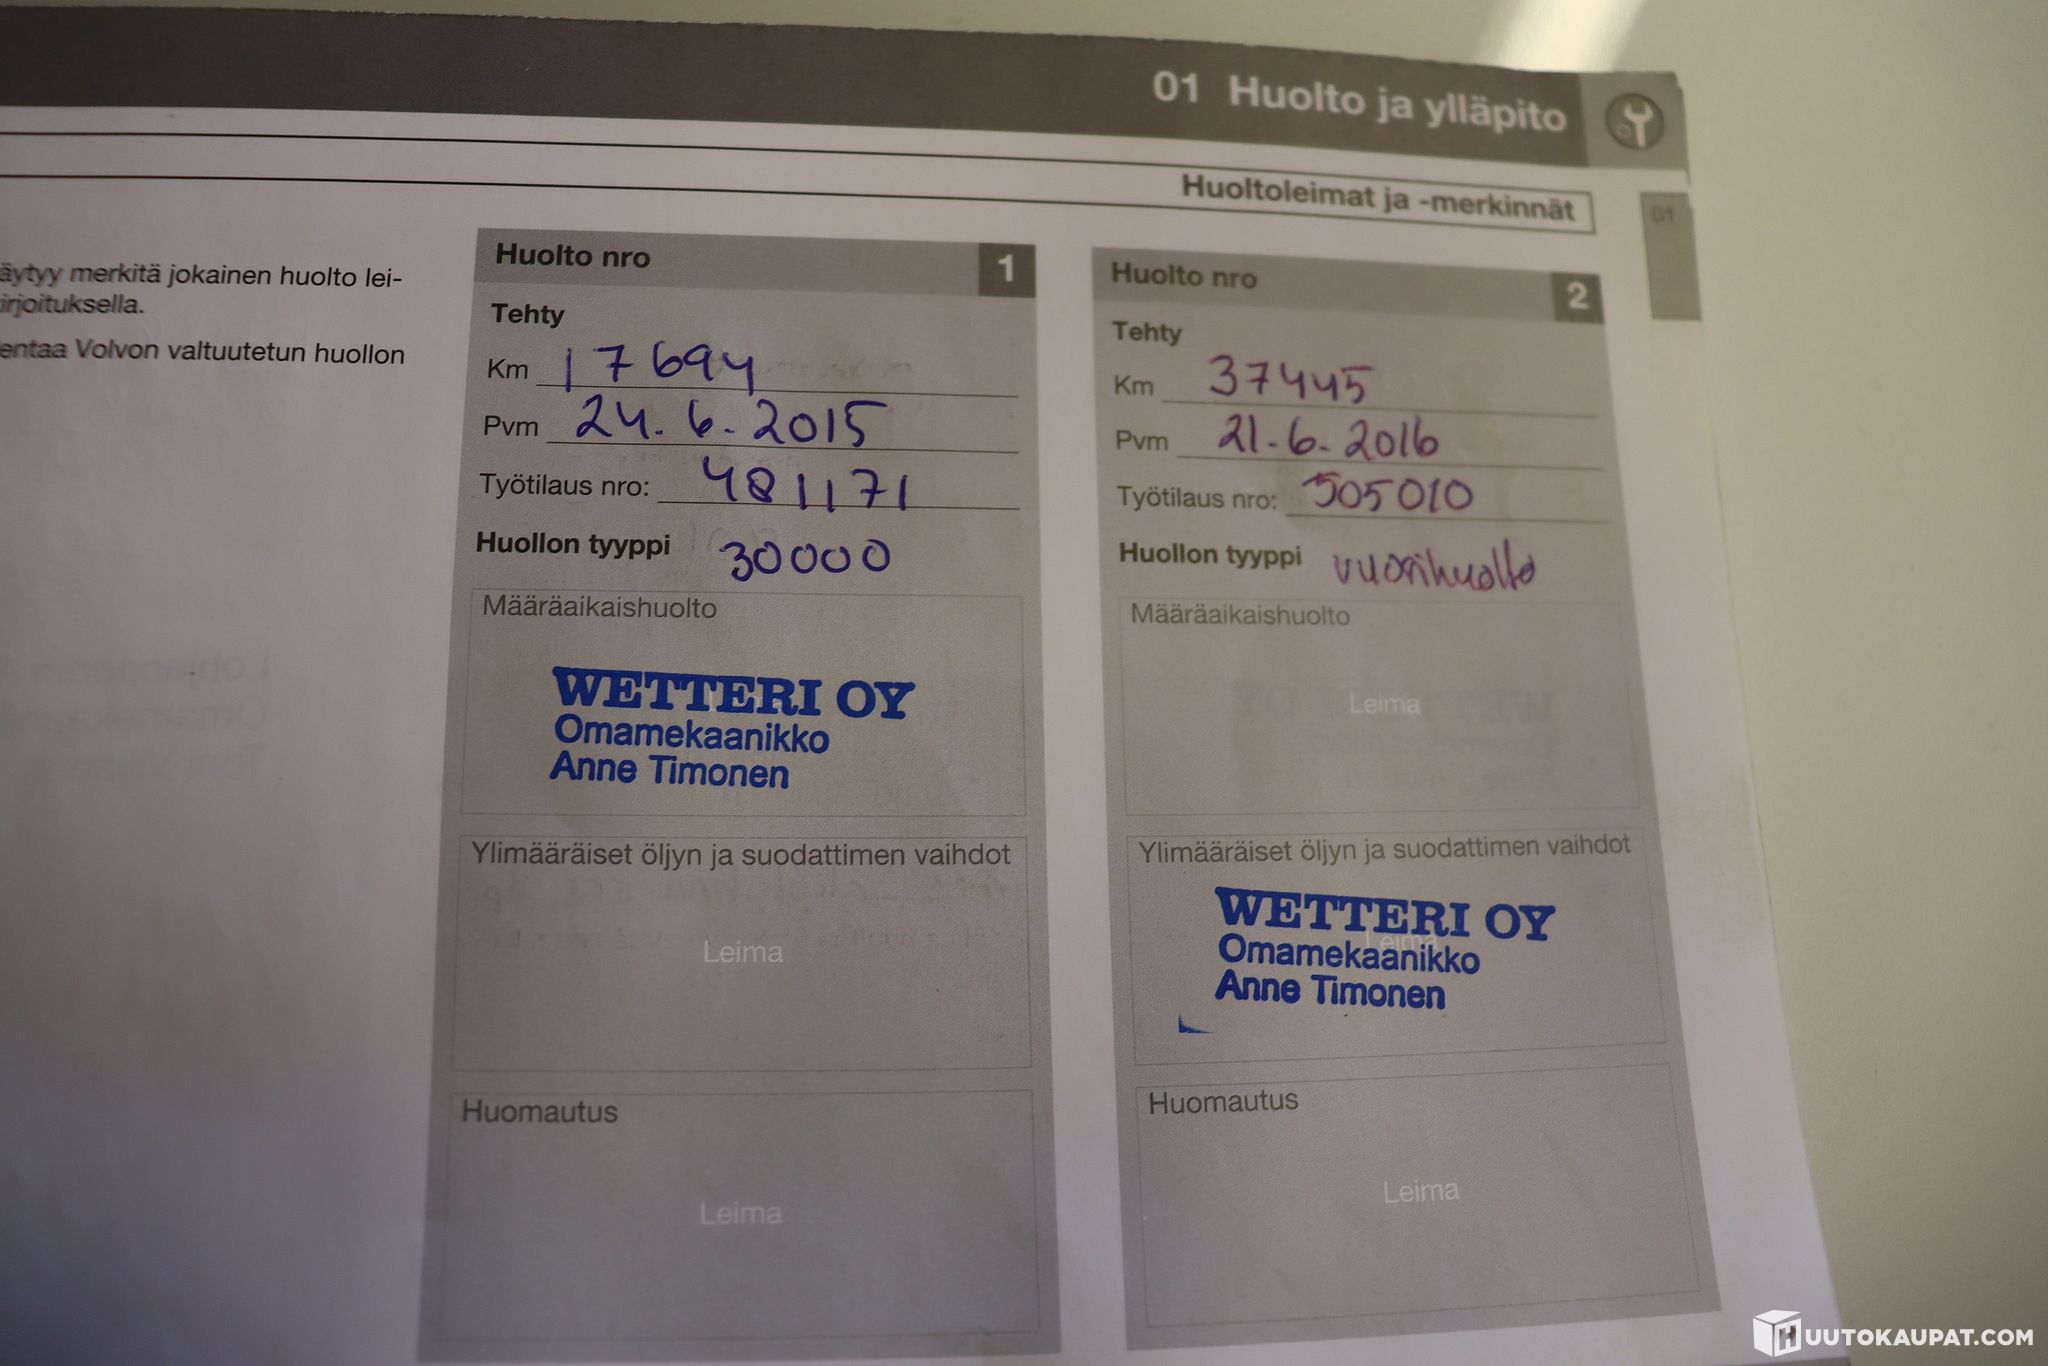 01 Huolto ja ylläpito
Huoltoleimat ja -merkinnät
01
äytyy merkitä jokainen huolto lei-
irjoituksella.
entaa Volvon valtuutetun huollon
Huolto nro 1
Tehty
Km 17694
Pvm 24.6.2015
Työtilaus nro: 481171
Huollon tyyppi 30000
Määräaikaishuolto
WETTERI OY
Omamekaanikko
Anne Timonen
Ylimääräiset öljyn ja suodattimen vaihdot
Leima
Huomautus
Leima
Huolto nro 2
Tehty
Km 37445
Pvm 21.6.2016
Työtilaus nro: 505010
Huollon tyyppi vuosihuolto
Määräaikaishuolto
Leima
Ylimääräiset öljyn ja suodattimen vaihdot
Leima
WETTERI OY
Omamekaanikko
Anne Timonen
Huomautus
Leima
HUUTOKAUPAT.COM